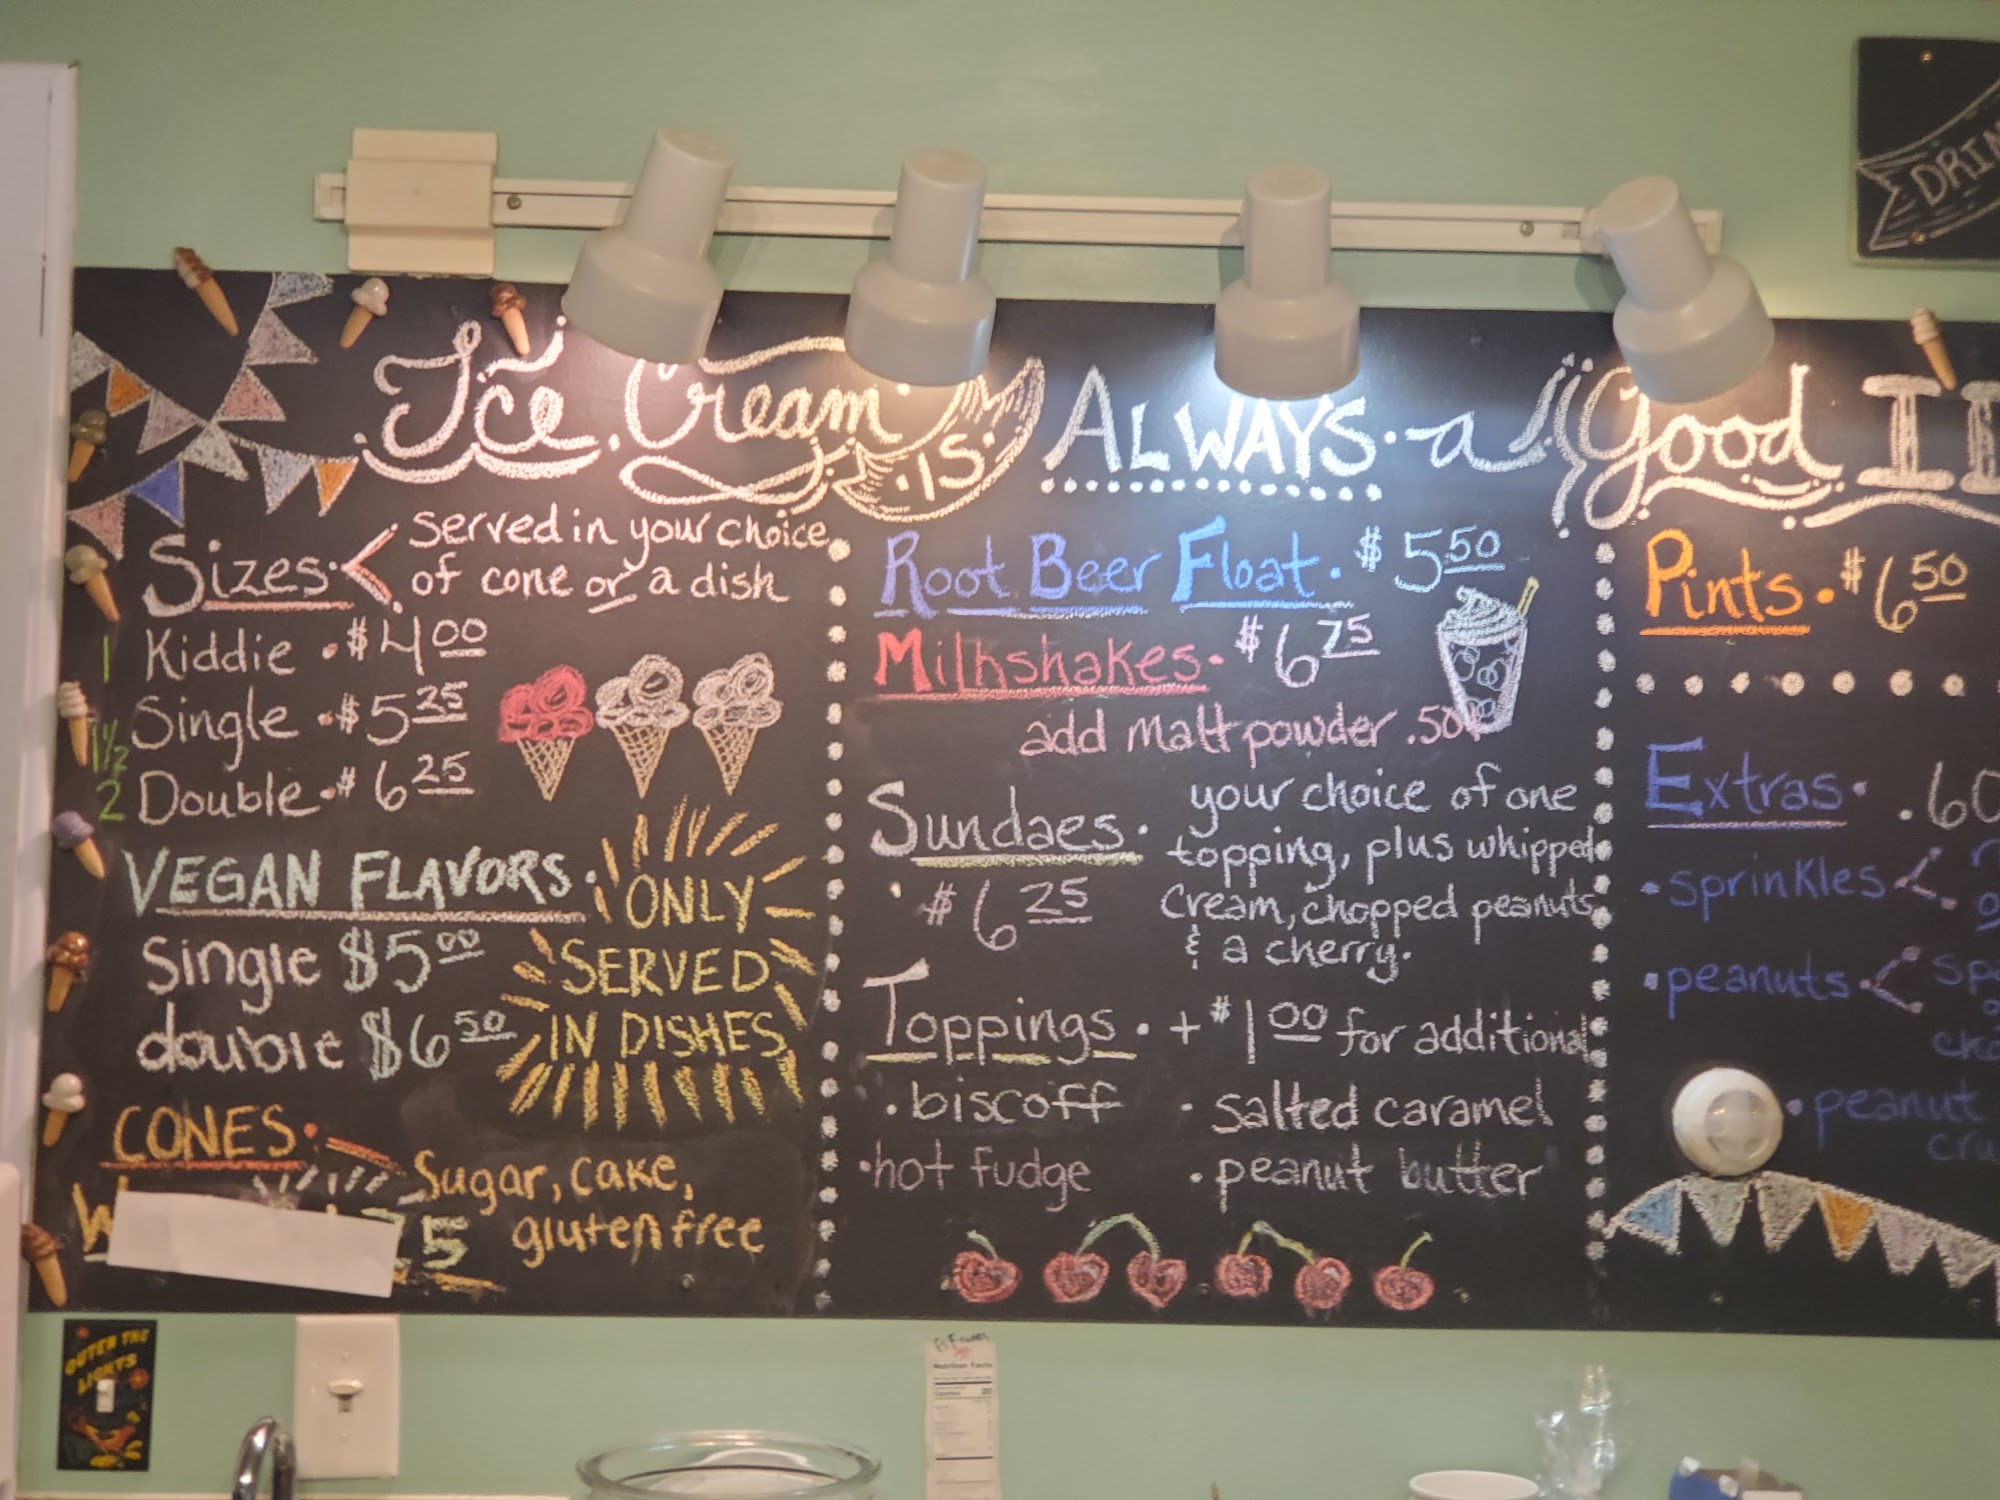 DRIN
Ice Cream is Always a Good II
Sizes
Served in your choice
of cone or a dish
1 Kiddie $4.00
1½ Single $5.25
2 Double $6.25
VEGAN FLAVORS
Single $5.00
double $6.50
ONLY
SERVED
IN DISHES
CONES
Sugar, cake,
gluten free
W
75
Root Beer Float $5.50
Milkshakes $6.75
add malt powder .50¢
Sundaes
$6.25
your choice of one
topping, plus whipped
cream, chopped peanuts
& a cherry.
Toppings + $1.00 for additional
biscoff
salted caramel
hot fudge
peanut butter
Pints $6.50
Extras .60
sprinkles
peanuts
peanut
cru
OUTEN THE
LIGHTS
Nutrition Facts